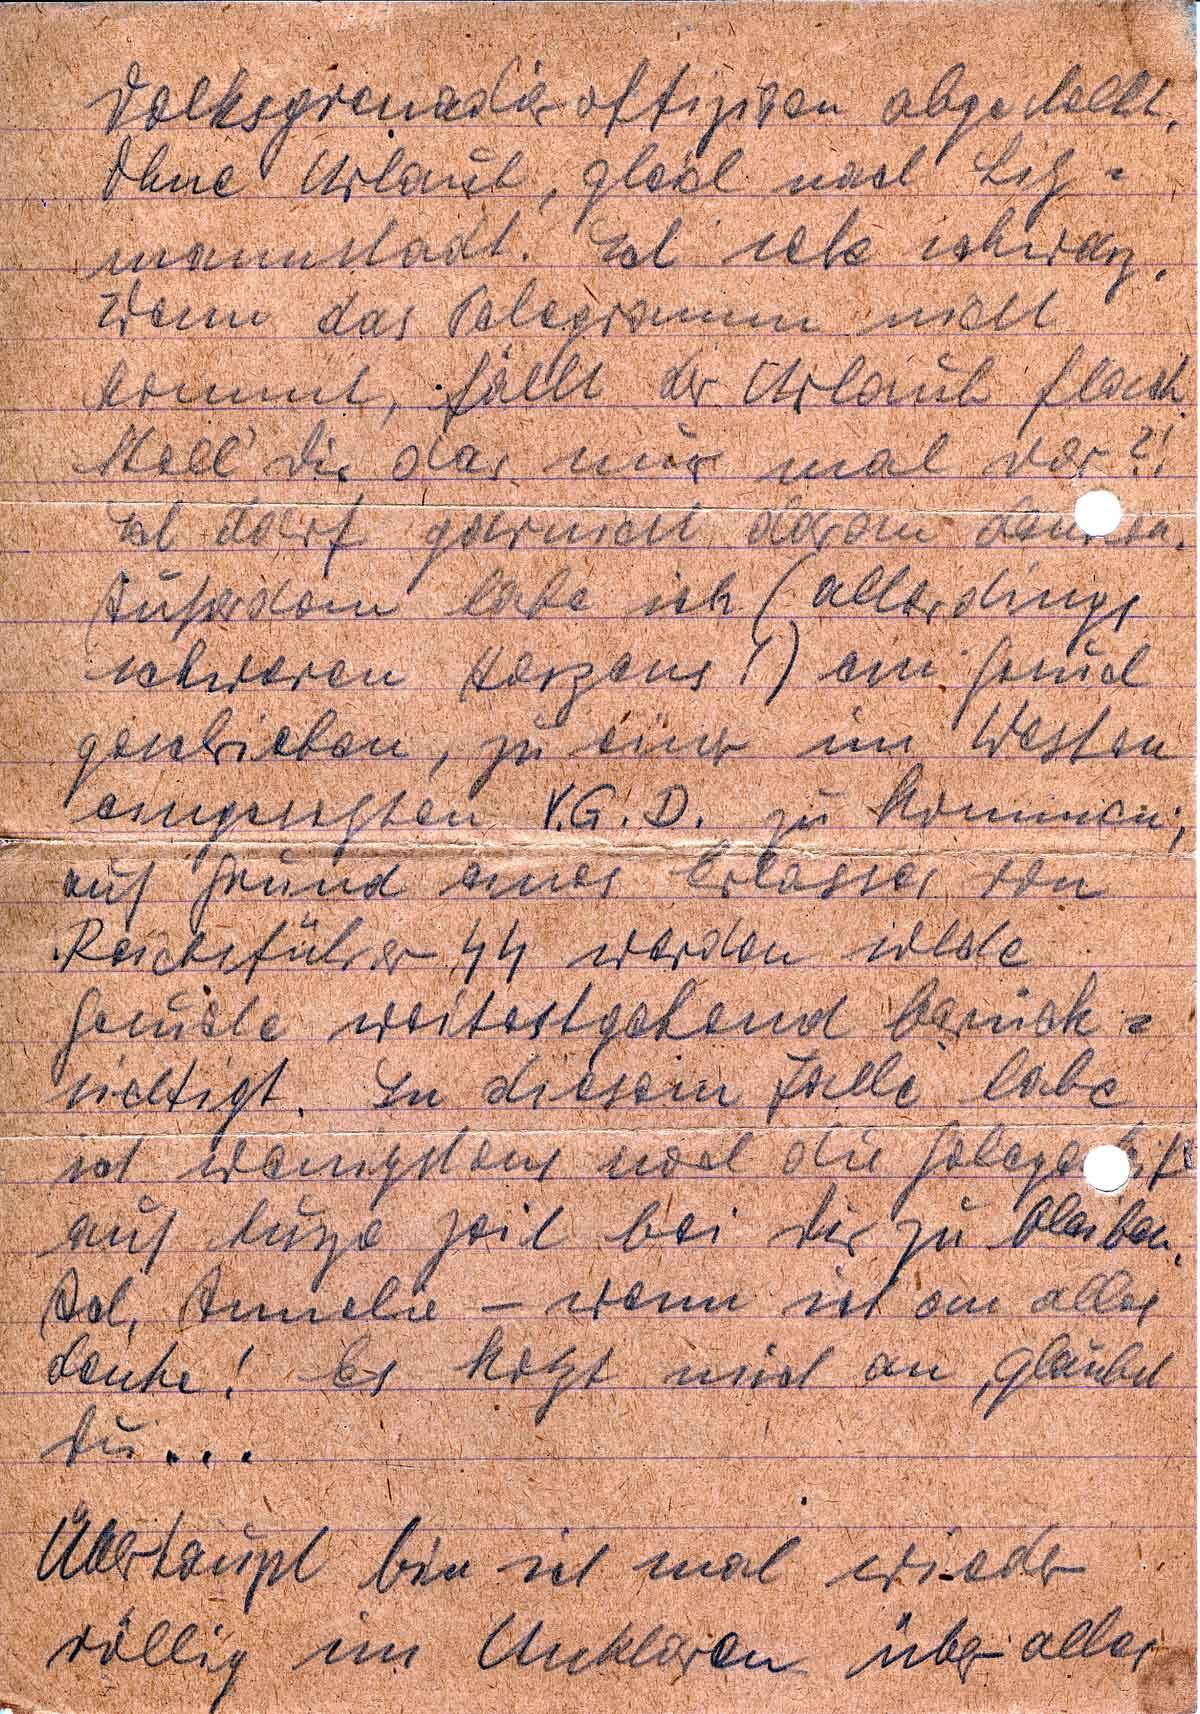 Volksgrenadieroffizieren abgestellt.
Ohne Urlaub, gleich nach Litz=
mannstadt. Ich sehe schwarz.
Wenn das Telegramm nicht
kommt, fällt der Urlaub flach.
Stell' Dir das nur mal vor?!
Ich darf garnicht daran denken.
Außerdem habe ich (allerdings
schweren Herzens!) ein Gesuch
geschrieben, zu einer im Westen
eingesetzten V.G.D. zu kommen;
auf Grund eines Erlasses von
Reichsführer SS werden solche
Gesuche weitestgehend berück=
sichtigt. In diesem Falle habe
ich wenigstens noch die Gelegenheit
auf kurze Zeit bei Dir zu bleiben.
Ach, Annelie – wenn ich an alles
denke! Es kotzt mich an, glaubst
Du...
Überhaupt bin ich mal wieder
völlig im Unklaren über alles